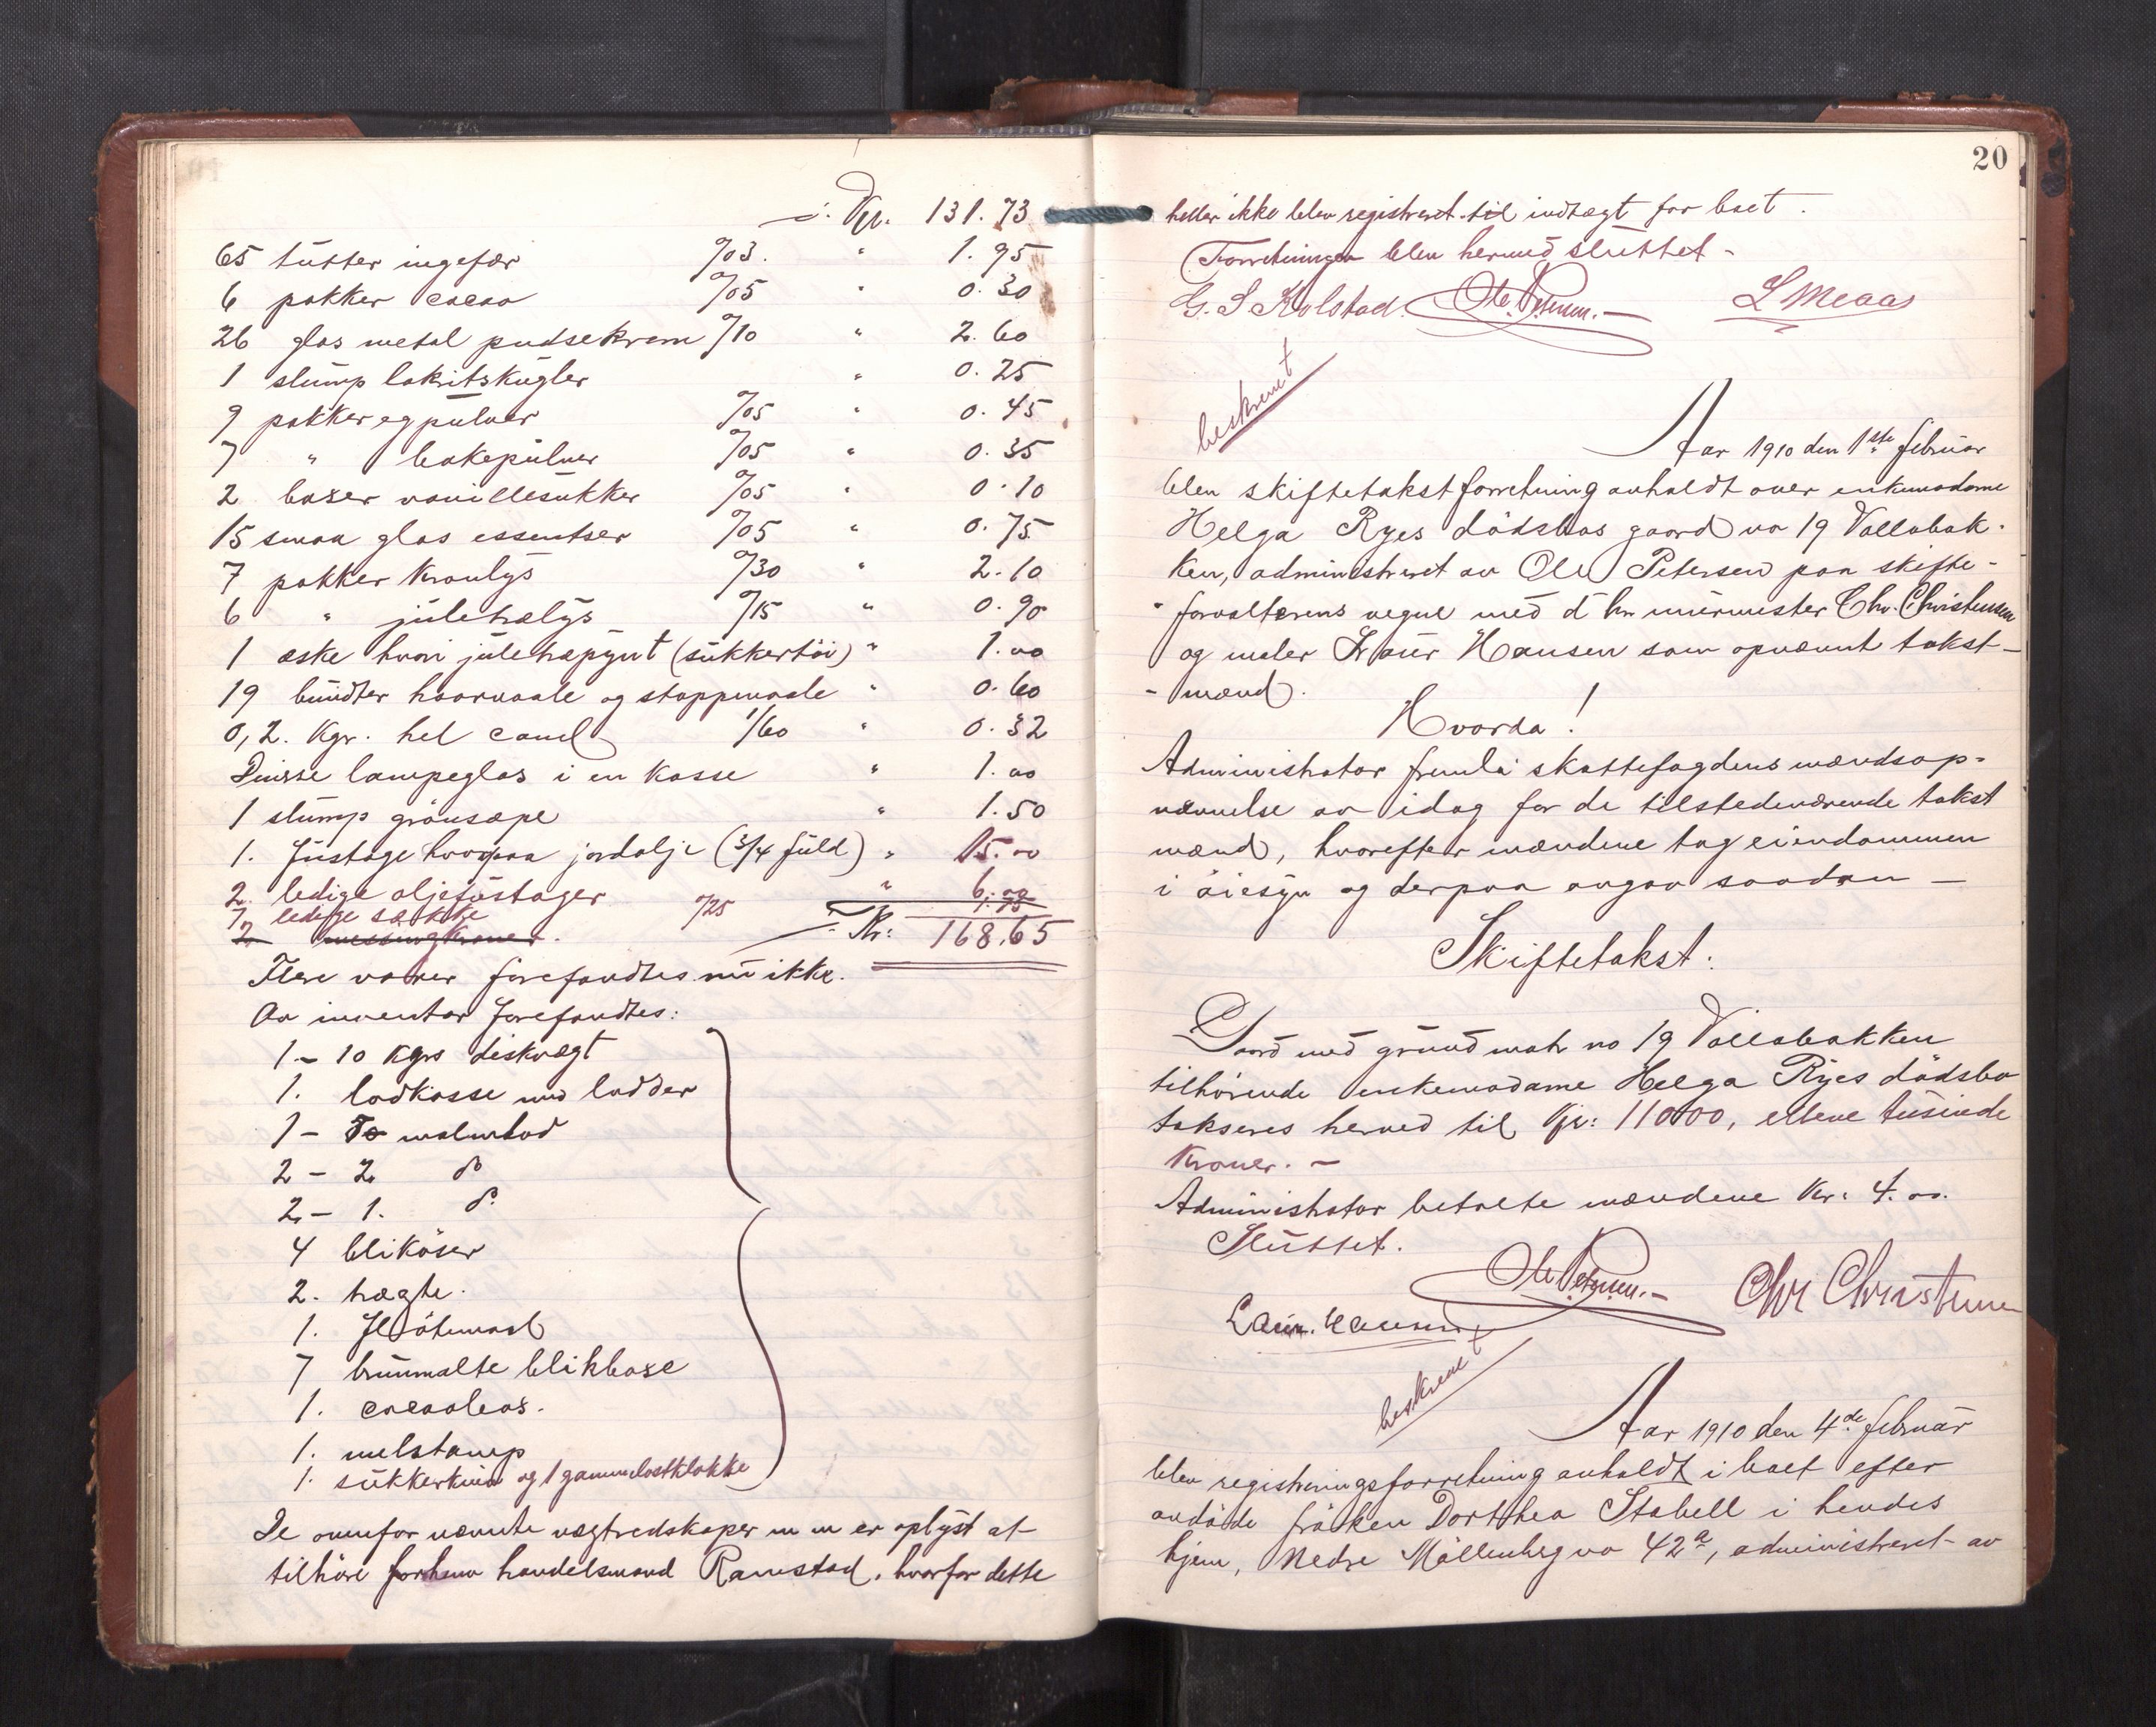 Kr. 131.73
65 tutter ingefær %03. " 1.95
6 pakker cacao %05 " 0.30
26 glas metal pudsekrem %10 " 2.60
1 slump lakritskugler " 0.25
9 pakker egpulver %05 " 0.45
7 " bakepulver %05 " 0.35
2 boxer vanillesukker %05 " 0.10
15 smaa glas essentser %05 " 0.75
7 pakker kronlys %30 " 2.10
6 " juletrælys %15 " 0.90
1 æske hvori juletrepynt (sukkertöi) " 1.00
19 bundter haarnaale og stoppenaale " 0.60
0,2. Kgr. hel canel 1/60 " 0.32
Divisse lampeglas i en kasse " 1.00
1 slump grönsæpe " 1.50
1. fustage hvorpaa jordolje (3/4 fuld) " 15.00
2. ledige oljefustager " 6.00
7 ledige sække %25 1.75
2 messingkroner. Kr: 168.65
Flere varer forefandtes nu ikke.
Av inventar forefandtes:
1 - 10 Kgrs diskvægt
1. lodkasse med lodder
1 - 5 malmlod
2 - 2 do
2 - 1. do
4 bliköser
2. trægte.
1. flötemaal
7 brunmalte blikboxe
1. cacaobox.
1. melstamp
1. sukkerkniv og 1 gammelostklokke
De ovenfor nævnte vægtredskaper m m er oplyst at
tilhöre forhenv handelsmand Ramstad, hvorfor dette
20
heller ikke blev registreret til indtægt for boet.
Forretningen blev hermed sluttet -
G. S Kolstad. Ole Petersen. - L Meaas
beskrevet
Aar 1910 den 1ste februar
blev skiftetakstforretning avholdt over enkemadame
Helga Ryes dödsbos gaard no 19 Vollabak-
ken, administreret av Ole Petersen paa skifte-
-forvalterens vegne med d'hrr murmester Chr. Christensen
og maler Laur Hansen som opnævnt takst-
- mænd.
Hvorda!
Administrator fremla skattefogdens mændsop-
nævnelse av idag for de tilstedeværende takst
mænd, hvorefter mændene tog eiendommen
i öiesyn og derpaa avgav saadan -
Skiftetakst:
Gaard med grund matr no 19 Vollabakken
tilhörende enkemadame Helga Ryes dödsbo
takseres herved til Kr: 11000, elleve tusinde
kroner. -
Administrator betalte mændene Kr: 4.00.
Sluttet.
Ole Petersen. - Chr Christensen
Laur. Hansen
beskrevet
Aar 1910 den 4de februar
blev registreringsforretning avholdt i boet efter
avdöde fröken Dorthea Stabell i hendes
hjem, Nedre Möllenberg no 42a, administreret av